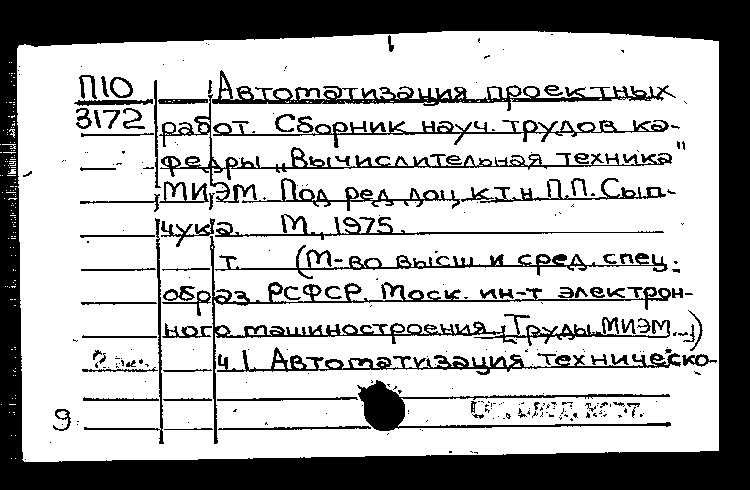 П10 Автоматизация проектных
3172 работ. Сборник науч. трудов ка-
федры „Вычислительная техника"
МИЭМ. Под ред доц к.т.н. П.П. Сып-
чука. М., 1975.
т. (М-во высш и сред. спец.
образ. РСФСР. Моск. ин-т электрон-
ного машиностроения. [Труды МИЭМ...])
2 экз. ч. I. Автоматизация техническо-
См. след. карт.
9